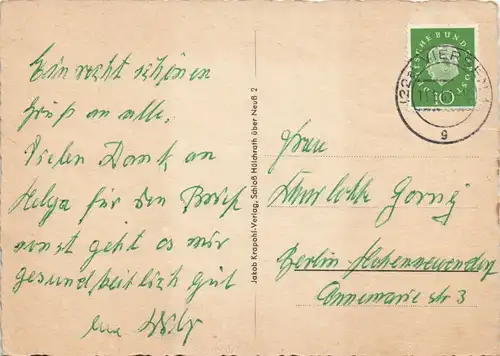 Ein recht schönen
Gruß an alle,
Vielen Dank an
Helga für den Brief
sonst geht es mir
gesundheitlich gut
Jakob Krapohl-Verlag, Schloß Hülchrath über Neuß 2
DEUTSCHE BUNDESPOST
10
(22a) VIERSEN
g
Frau
Charlotte Gorny
Berlin-Hohenneuendorf
Annemarie str 3